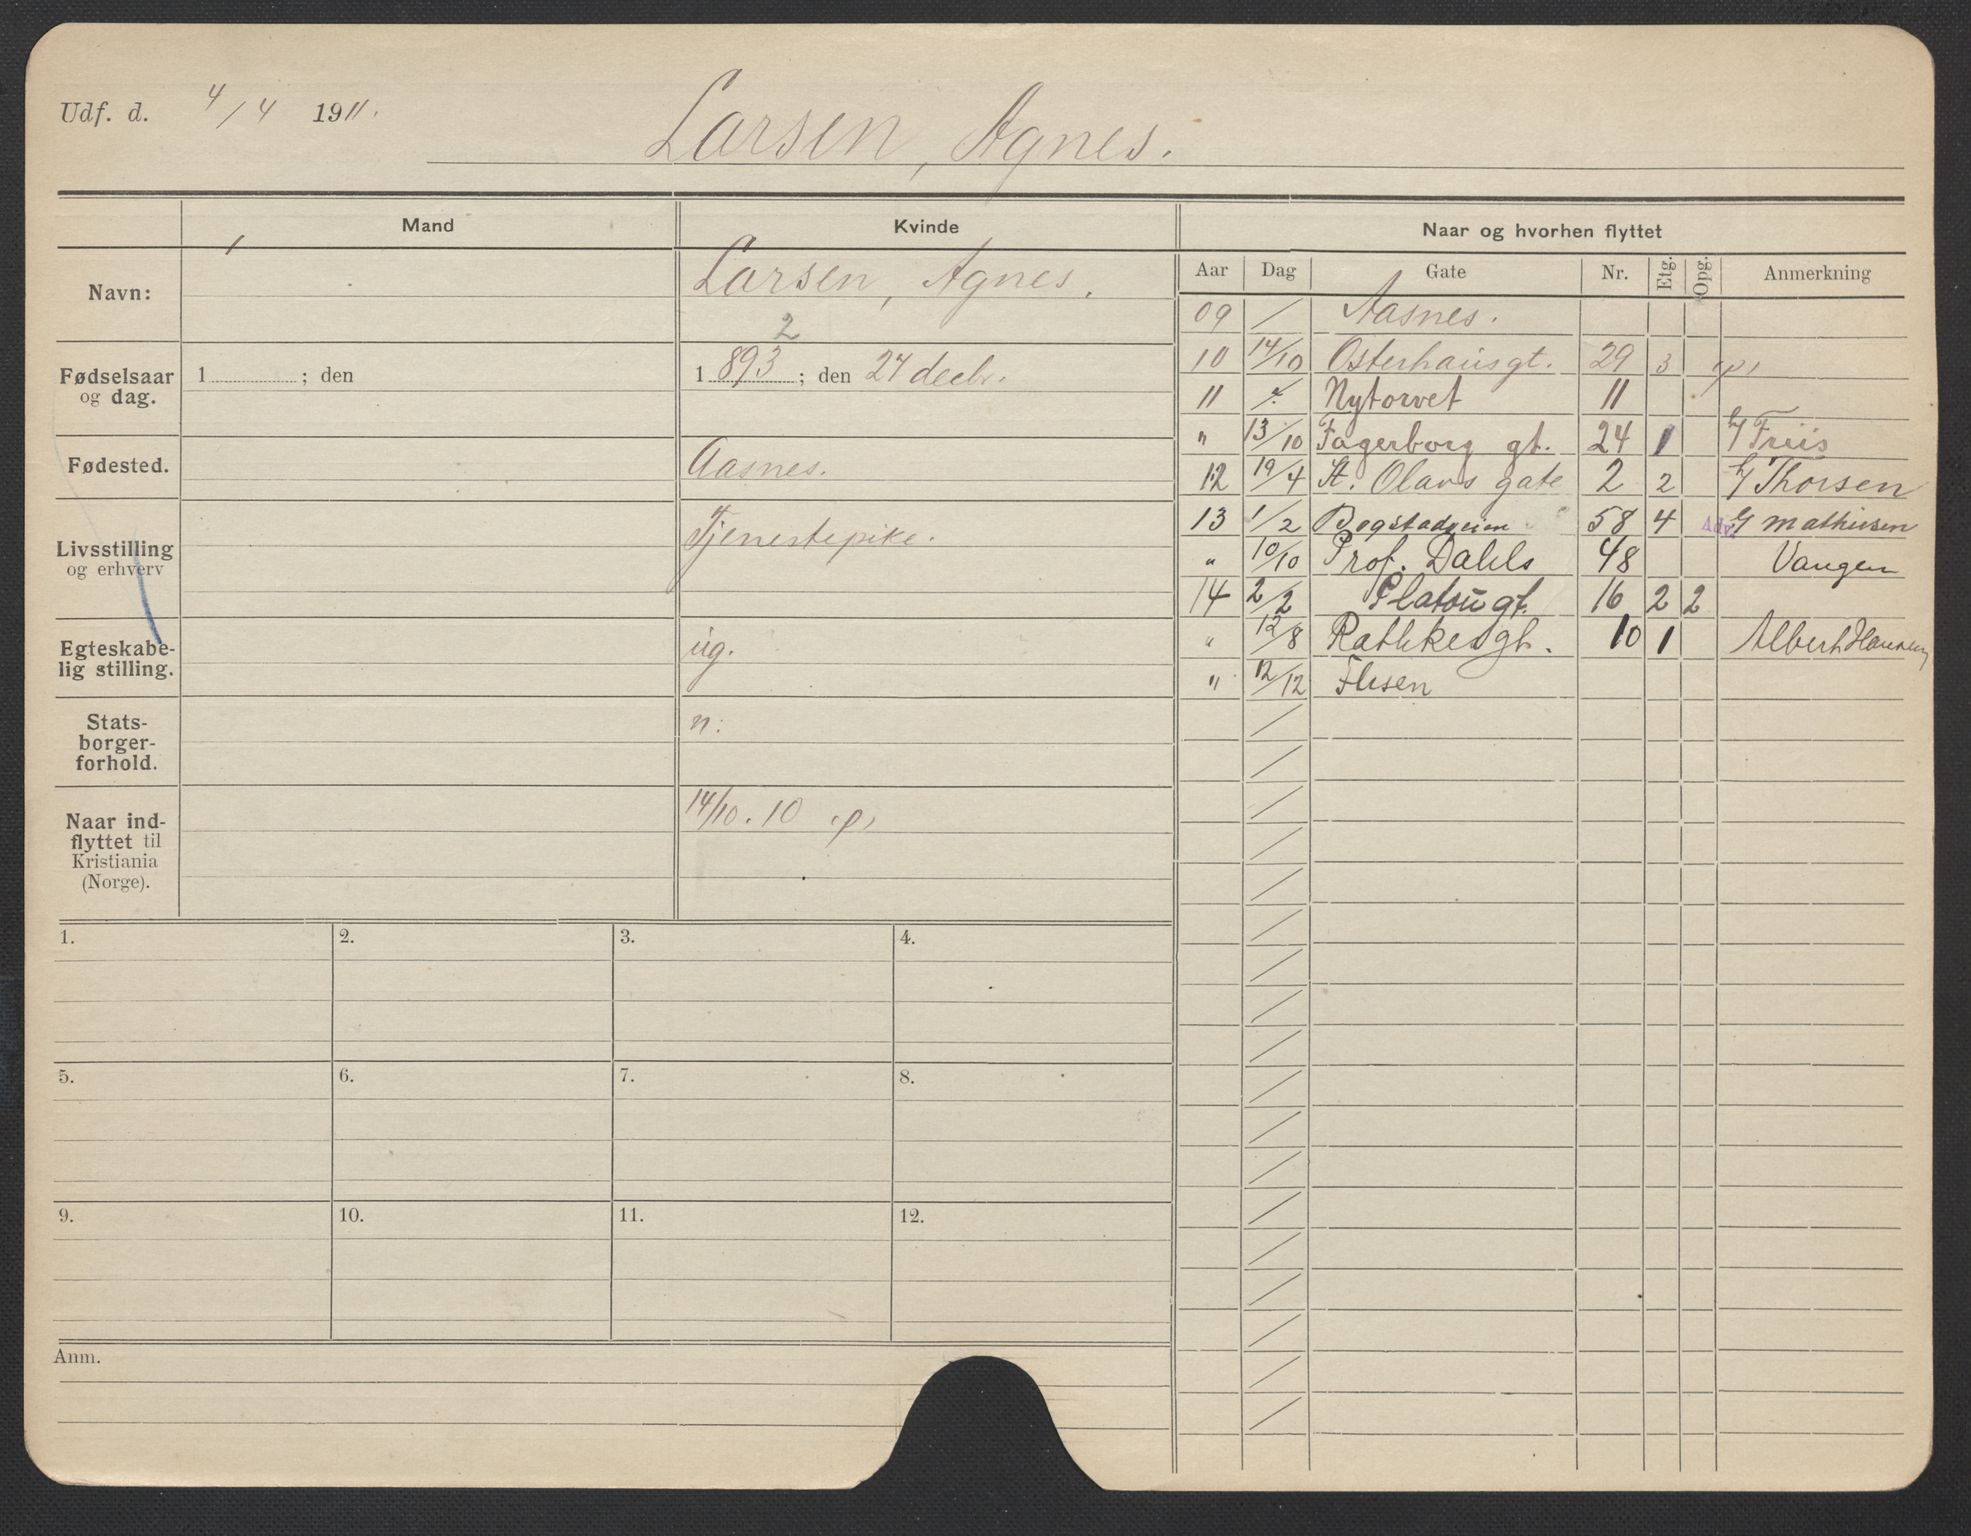 Udf. d. 4/4 1911.
Larsen, Agnes.
Mand
Kvinde
Naar og hvorhen flyttet
Navn:
Larsen, Agnes.
Fødselsaar
og dag.
1 ; den
2
1 893 ; den 27 decbr.
Fødested.
Aasnes.
Livsstilling
og erhverv
Tjenestepike.
Egteskabe-
lig stilling.
ug.
Stats-
borger-
forhold.
n.
Naar ind-
flyttet til
Kristiania
(Norge).
14/10. 10 p,
Aar Dag Gate Nr. Etg. Opg. Anmerkning
09 / Aasnes.
10 14/10 Osterhausgt. 29 3 p,
11 / Nytorvet 11
" 13/10 Fagerborg gt. 24 1 h/ Friis
12 19/4 St. Olavs gate 2 2 h/ Thorsen
13 1/2 Bogstadveien 58 4 Adv. h/ Mathiesen
" 10/10 Prof. Dahls 48 Vangen
14 2/2 Platougt. 16 2 2
" 12/8 Rathkesgt. 10 1 Albert Hansen
" 12/12 Flisen
1. 2. 3. 4.
5. 6. 7. 8.
9. 10. 11. 12.
Anm.